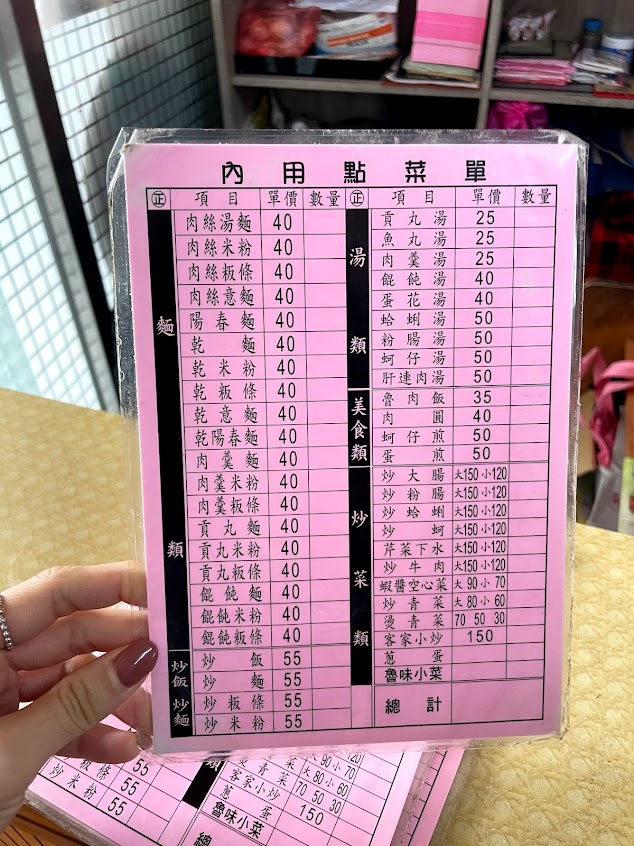 內用點菜單
㊣ 項目 單價 數量
麵類
肉絲湯麵 40
肉絲米粉 40
肉絲粄條 40
肉絲意麵 40
陽春麵 40
乾麵 40
乾米粉 40
乾粄條 40
乾意麵 40
乾陽春麵 40
肉羹麵 40
肉羹米粉 40
肉羹粄條 40
貢丸麵 40
貢丸米粉 40
貢丸粄條 40
餛飩麵 40
餛飩米粉 40
餛飩粄條 40
炒飯炒麵
炒飯 55
炒麵 55
炒粄條 55
炒米粉 55
㊣ 項目 單價 數量
湯類
貢丸湯 25
魚丸湯 25
肉羹湯 25
餛飩湯 40
蛋花湯 40
蛤蜊湯 50
粉腸湯 50
蚵仔湯 50
肝連肉湯 50
美食類
魯肉飯 35
肉圓 40
蚵仔煎 50
蛋煎 50
炒菜類
炒大腸 大150 小120
炒粉腸 大150 小120
炒蛤蜊 大150 小120
炒蚵 大150 小120
芹菜下水 大150 小120
炒牛肉 大150 小120
蝦醬空心菜 大90 小70
炒青菜 大80 小60
燙青菜 70 50 30
客家小炒 150
蔥蛋
魯味小菜
總計
粄條 55
炒米粉 55
類
大90 小70
炒青菜 大80 小60
燙青菜 70 50 30
客家小炒 150
蔥蛋
魯味小菜
總